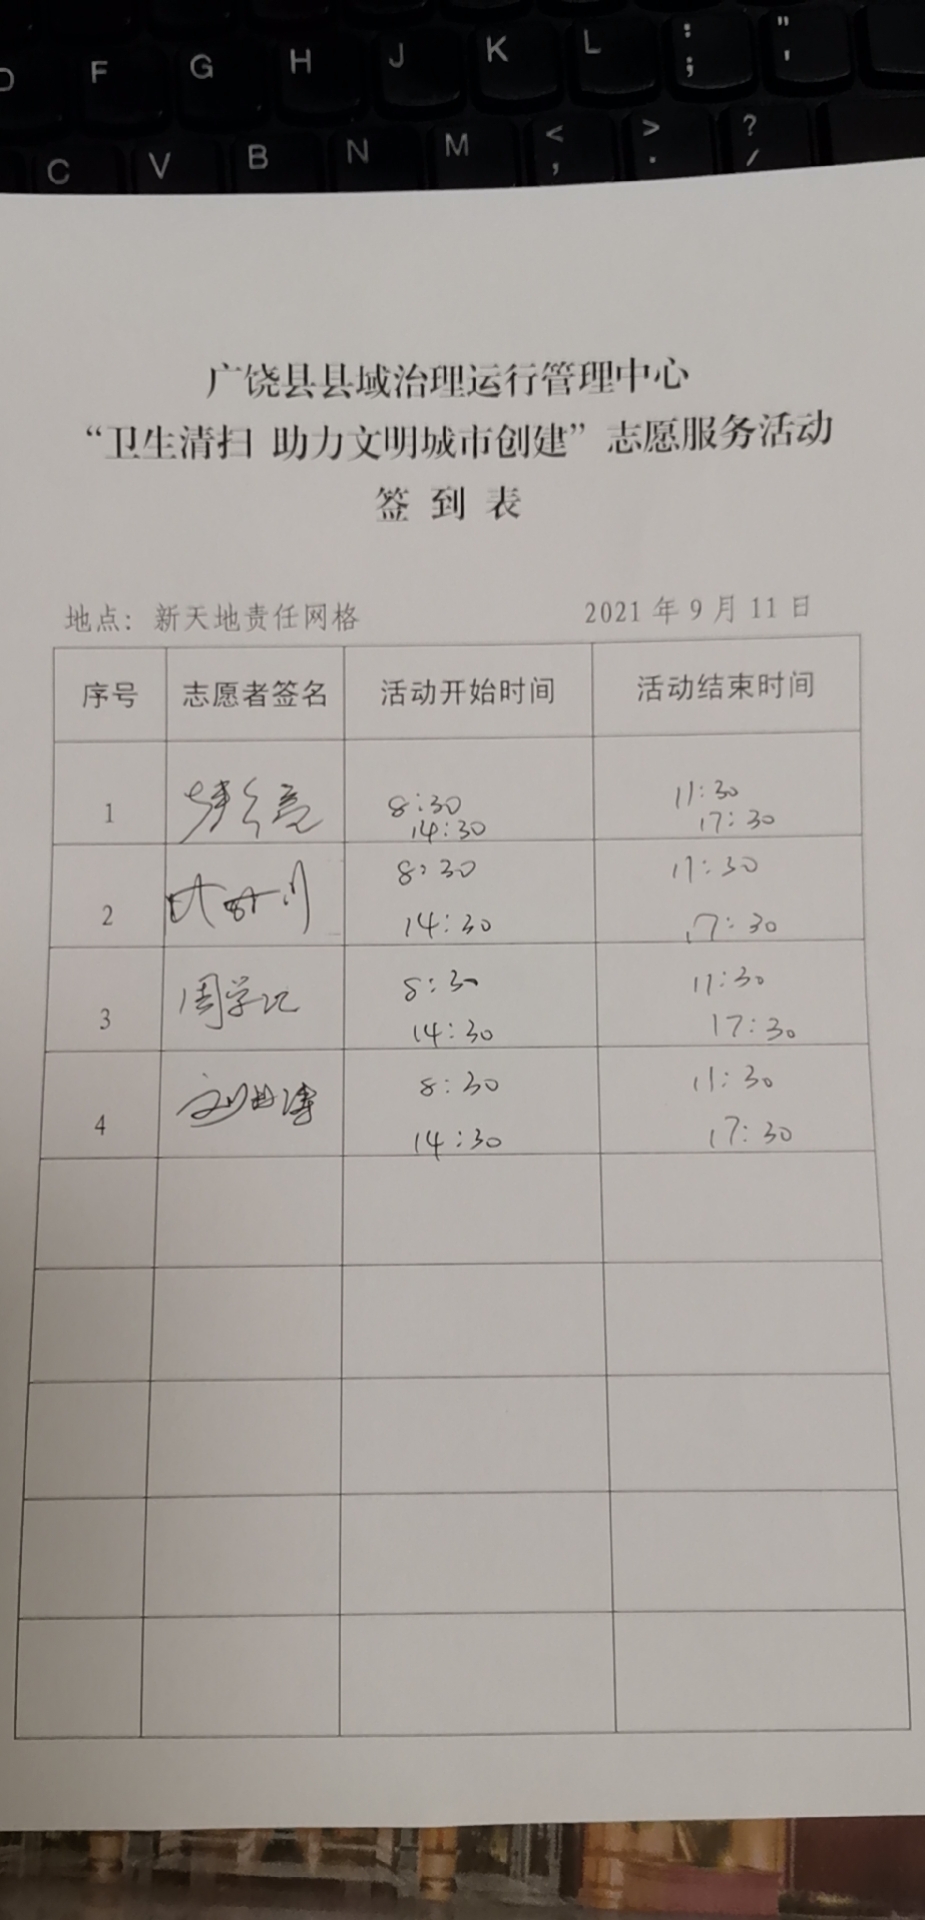 D F G H J K L : ; " '
C V B N M < , > . ? /
广饶县县域治理运行管理中心
“卫生清扫 助力文明城市创建”志愿服务活动
签 到 表
地点：新天地责任网格 2021 年 9 月 11 日
序号 志愿者签名 活动开始时间 活动结束时间
8:30 11:30
1 14:30 17:30
8:30 11:30
2 14:30 17:30
8:30 11:30
3 周学 14:30 17:30
8:30 11:30
4 刘 14:30 17:30